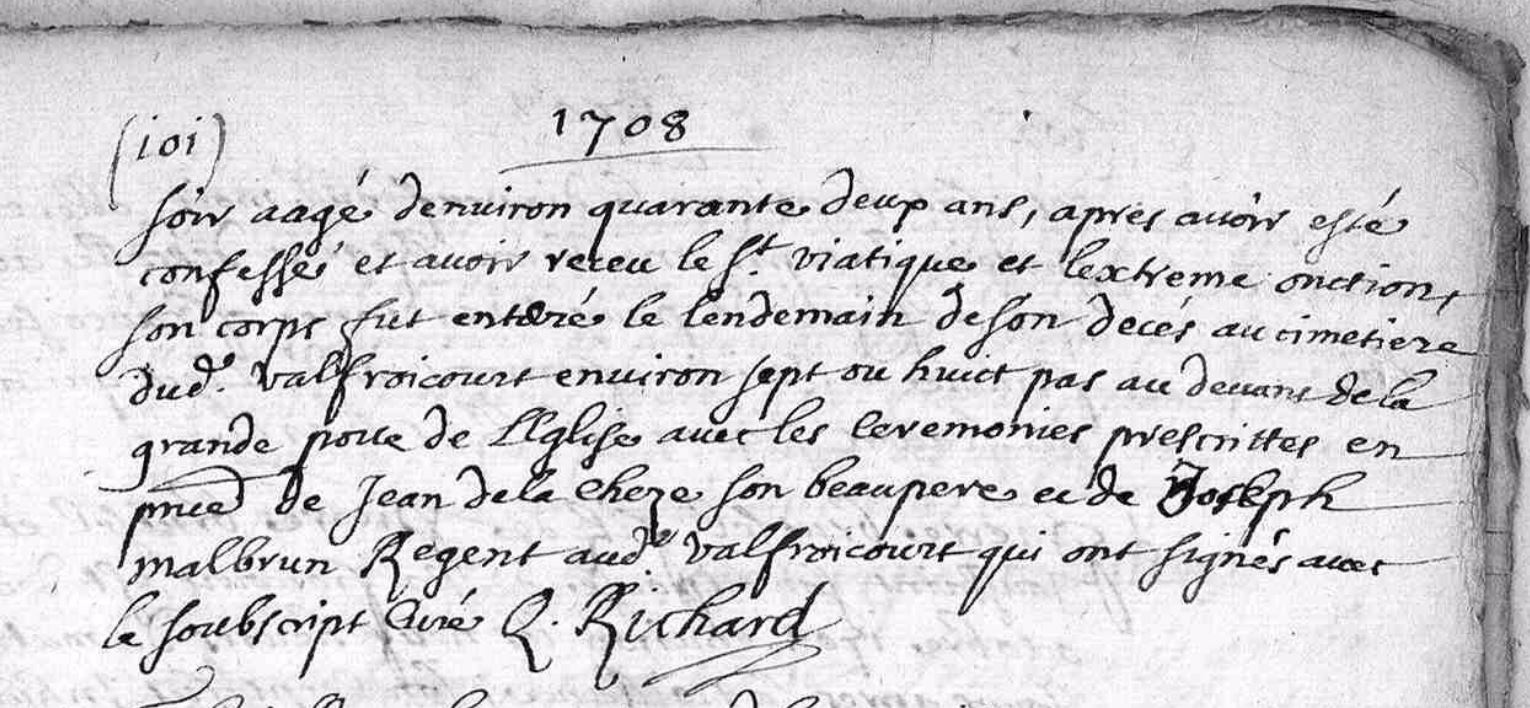 (101)
1708
soir aagé denuiron quarante deux ans, apres auoir esté
confessé et auoir receu le St. viatique et lextreme onction,
son corps fut enterré le lendemain de son decés au cimetiere
dud.e valfroicourt enuiron sept ou huict pas au deuant de la
grande porte de LEglise auec les ceremonies prescrittes en
pnce de Jean de la Cheze son beaupere et de Joseph
malbrun Regent aud.e valfroicourt qui ont signés auec
le soubscript Curé Q. Richard